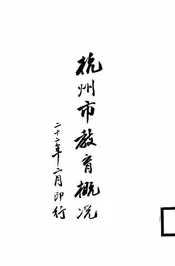 杭州市教育概况
二十二年六月印行